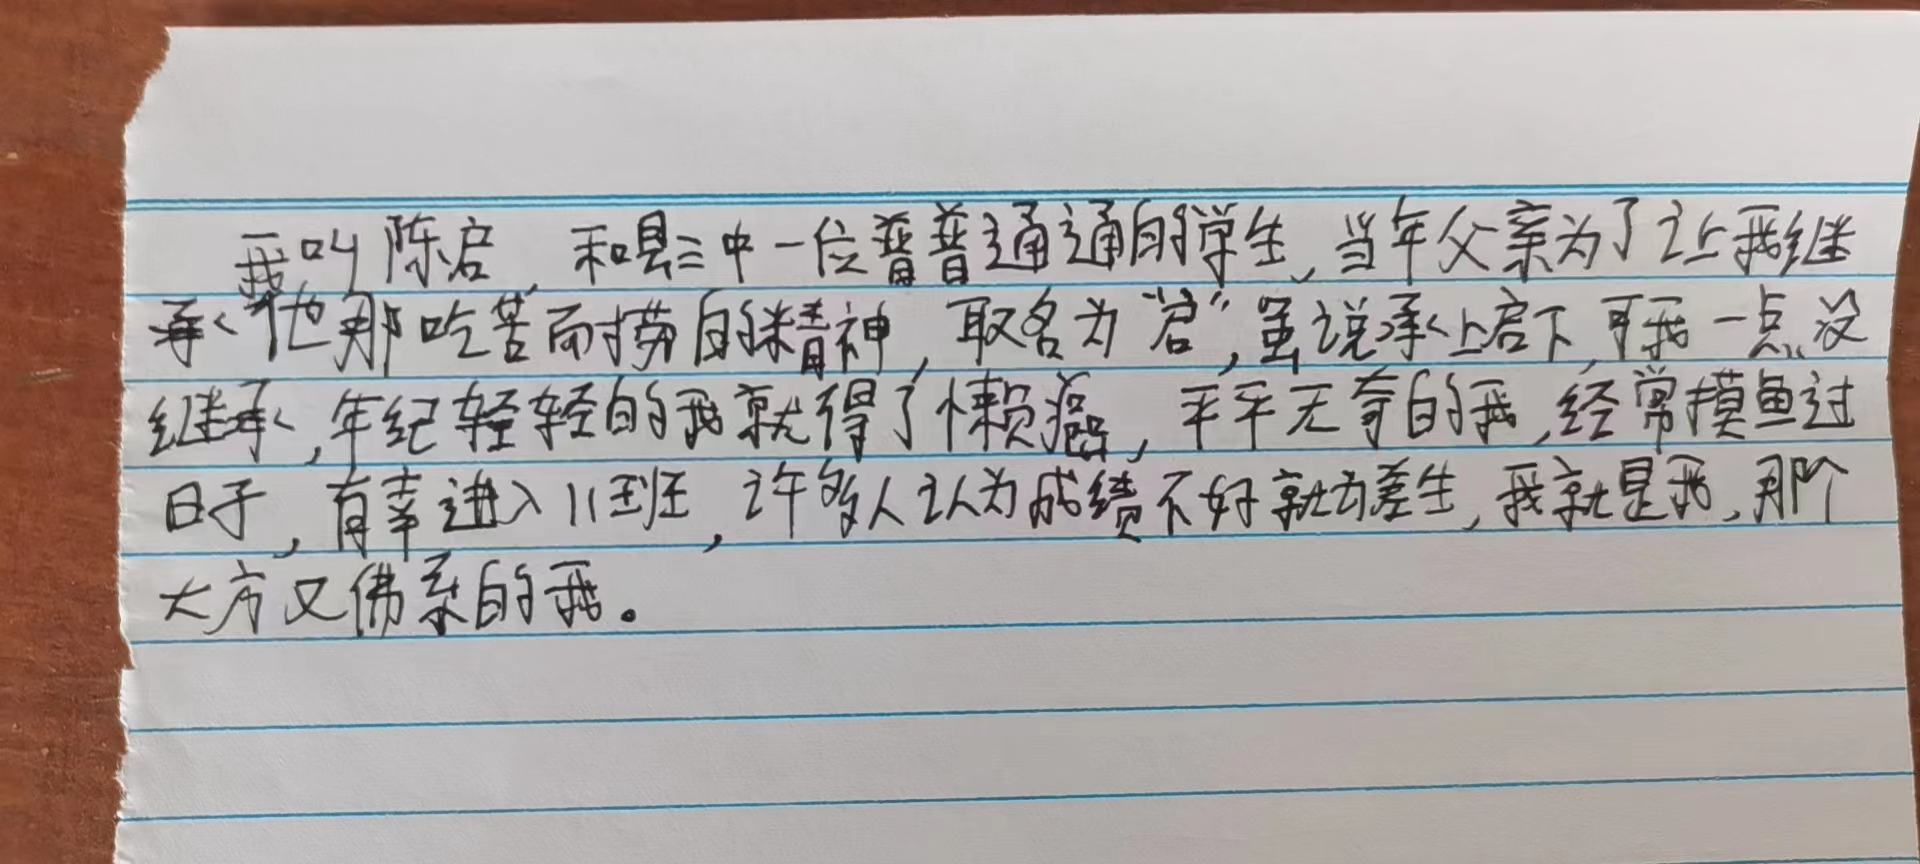 我叫陈启,和县三中一位普普通通的学生,当年父亲为了让我继
承他那吃苦而捞的精神,取名为“启”,虽说承上启下,可我一点没
继承,年纪轻轻的我就得了懒癌,平平无奇的我,经常摸鱼过
日子,有幸进入11班,许多人认为成绩不好就为差生,我就是我,那个
大方又佛系的我。